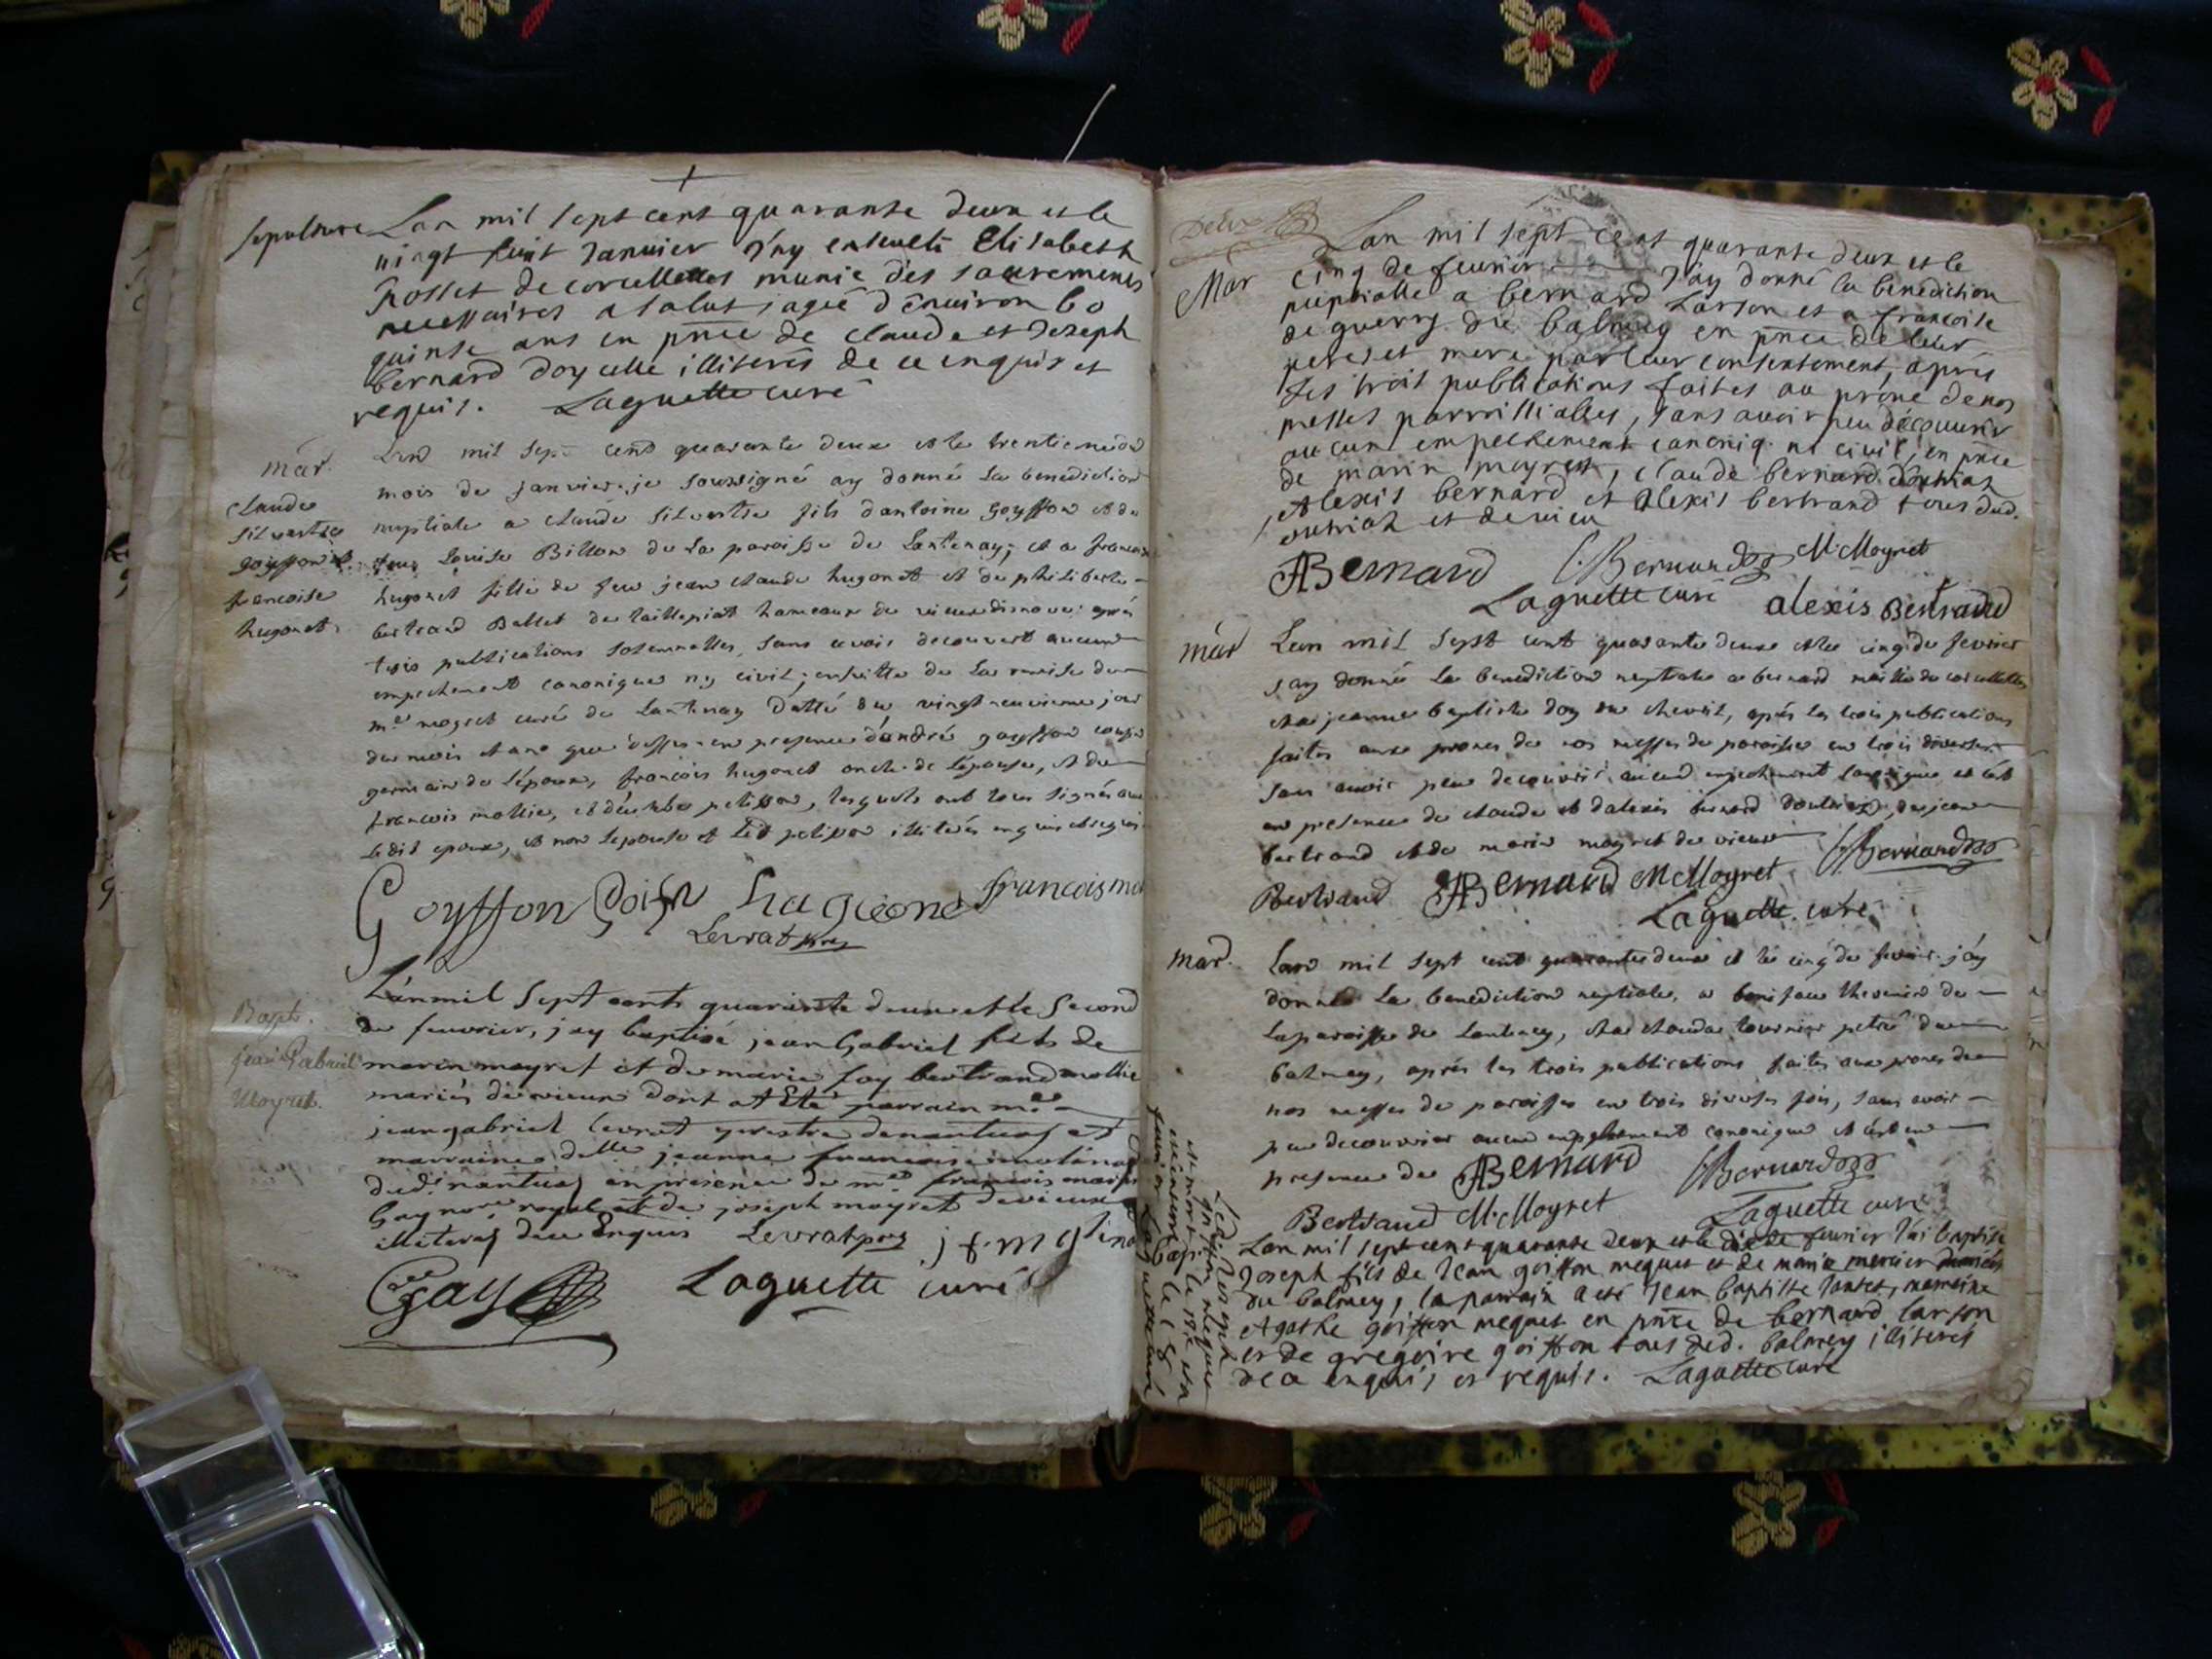 sepulture Lan mil sept cent quarante deux et le
vingt huit Janvier J'ay enseveli Elisabeth
Rosset de corcelles munie des sacrements
necessaires a salut, agée d'environ 60
quinse ans en pñce de claude et Joseph
bernard doy elle illiteres de ce enquis et
requis. Laguette curé
mar. Lan mil sept cent quarante deux et le trentieme du
mois de janvier je soussigné ay donné la benediction
claude
silvestre nuptiale a claude silvestre fils dantoine goyffon et de
goyffon et louise Billon de la paroisse de Lantenay; et a francoise
francoise hugonet fille de feu jean claude hugonet et de philiberte
hugonet bertrand Ballet de hameaux de vieux disnave: après
trois publications solemnelles, sans avoir decouvert aucun
empechement canonique ny civil; ensuitte de la remise de
mre moyret curé de Lantenay datté du vingt neuvieme jour
du mois et an que dessus en presence dandré goyffon cousin
germain de lépoux, francois hugonet oncle de lépouse, et de
francois mollie, et de pelisson, lesquels ont tous signés avec
ledit epoux, et non lepouse et led pelisson illiterés enquis et requis
Goyffon Goifn hugone francois mo
Levrat
Bapt. Lanmil Sept cents quarante deux et le second
de feuvrier, jay baptisé jean Gabriel fils de
jean Gabriel marin moyret et de marie foy bertrand mollie
Moyret. mariés de vieux dont at Eté parrain mre
jeangabriel levrat prestre denantuas et
marraine delle jeanne francoise molinas
dudt nantuas en presence de mre francois marie
Gay nore royal et de joseph moyret devieux
illiteres de ce Enquis Levrat j f. m
Gay Laguette curé
Deux
Lan mil sept cent quarante deux et le
Mar cinq de feuvrier J'ay donné la benediction
nuptialle a bernard Larson et a francoise
deguerry du balmey en pñce de leur
peres et mere par leur consentement, apres
les trois publications faites au prone de nos
messes parroissialles, sans avoir peu découvrir
aucun empechement canoniq. ni civil, en pñce
de marin moyret, claude bernard doutriaz
Alexis bernard et Alexis bertrand tous dud.
outriaz et de vieu
ABernard CBernard M Moyret
Laguette curé alexis Bertrand
mar Lan mil sept cent quarante deux et le cinq de fevrier
jay donné la benediction nuptiale a bernard mollie de corcelles
et a jeanne baptiste doy de chevril, après les trois publications
faites aux prones de nos messes de paroisse en trois diverses
sans avoir peu decouvrir aucun empechement canonique et c'est
en presence de claude et dalexis bernard doutriaz, de jean
bertrand et de marin moyret de vieux
CBernard
Bertrand ABernard M Moyret
Laguette curé
mar. Lan mil sept cent quarante deux et le cinq de fevrier j'ay
donné la benediction nuptiale, a boniface thevenin de
laparoisse de Lantenay, et a clauda tournier petré du
balmey, après les trois publications faites aux prones de
nos messes de paroisse en trois diverses fois, sans avoir
peu decouvrir aucun empechement canonique et c'est en
presence de ABernard CBernard
Bertrand M Moyret Laguette curé
Bap. Lan mil sept cent quarante deux et le dix de feuvrier J'ai baptisé
Joseph fils de Jean goiffon meques et de marie mercier mariés
du balmey, le parrain a eté Jean baptiste Jantet, marreine
Agathe goiffon meques en pñce de bernard larson
et de gregoire goiffon tous dud. balmey illiteres
de ce enquis et requis. Laguette curé
Led Joseph
goiffon meques
est mort le 17e et
enterré le 18
feuvrier Laguette curé